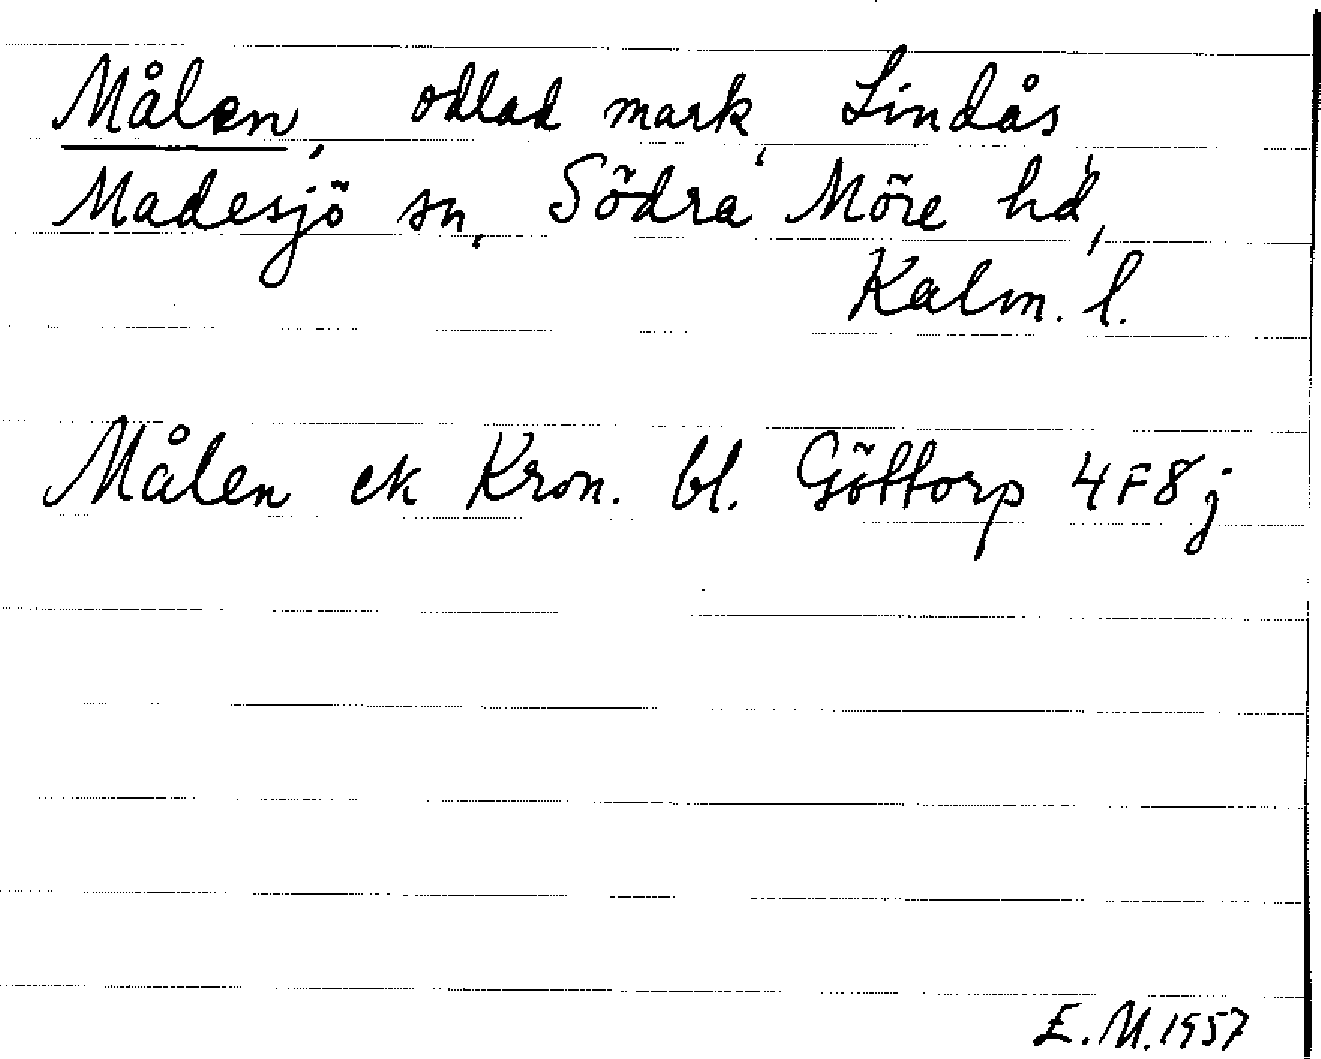 Målen, odlad mark, Lindås,
Madesjö sn, Södra Möre hd,
Kalm. l.
Målen ek Kron. bl. Göttorp 4F8j
E.M. 1957